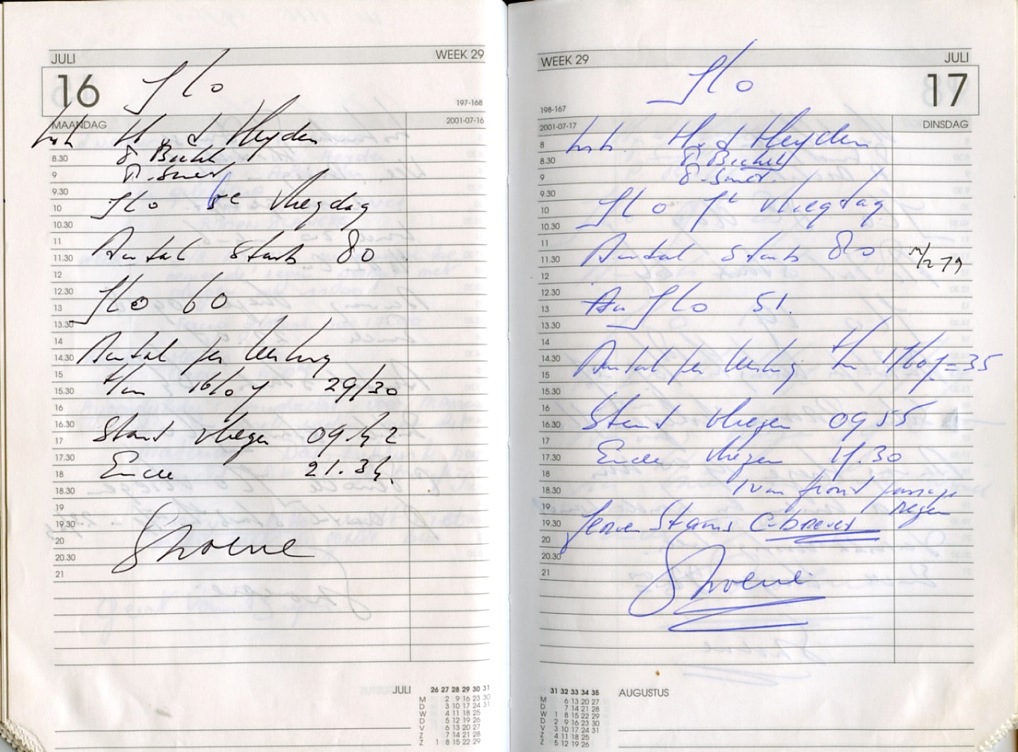 JULI WEEK 29
16
197-168
MAANDAG 2001-07-16
Glo
Inst. H. v d Heyden
8
8.30
9
9.30
10 Glo 5e vliegdag
10.30
11
11.30 Aantal starts 80
12
12.30
13 Glo 60
13.30
14
14.30 Aantal per leerling
15
15.30 t/m 16/07 29/30
16
16.30 Start vliegen 09.42
17
17.30
18 Einde 21.34.
18.30
19
19.30
20
20.30
21
JULI 26 27 28 29 30 31
M 2 9 16 23 30
D 3 10 17 24 31
W 4 11 18 25
D 5 12 19 26
V 6 13 20 27
Z 7 14 21 28
Z 1 8 15 22 29
WEEK 29 JULI
17
198-167
2001-07-17 DINSDAG
Glo
8 Inst. H v d Heyden
8.30
9
9.30
10 Glo vliegdag
10.30
11
11.30 Aantal starts 80
12
12.30
13 Glo 51.
13.30
14
14.30 Aantal per leerling t/m 17/07 = 35
15
15.30
16
16.30 Start vliegen 09.55
17
17.30 Einde vliegen
18
18.30 front passage
regen
19
19.30 Jeroen Stams C-brevet
20
20.30
21
31 32 33 34 35 AUGUSTUS
M 6 13 20 27
D 7 14 21 28
W 1 8 15 22 29
D 2 9 16 23 30
V 3 10 17 24 31
Z 4 11 18 25
Z 5 12 19 26